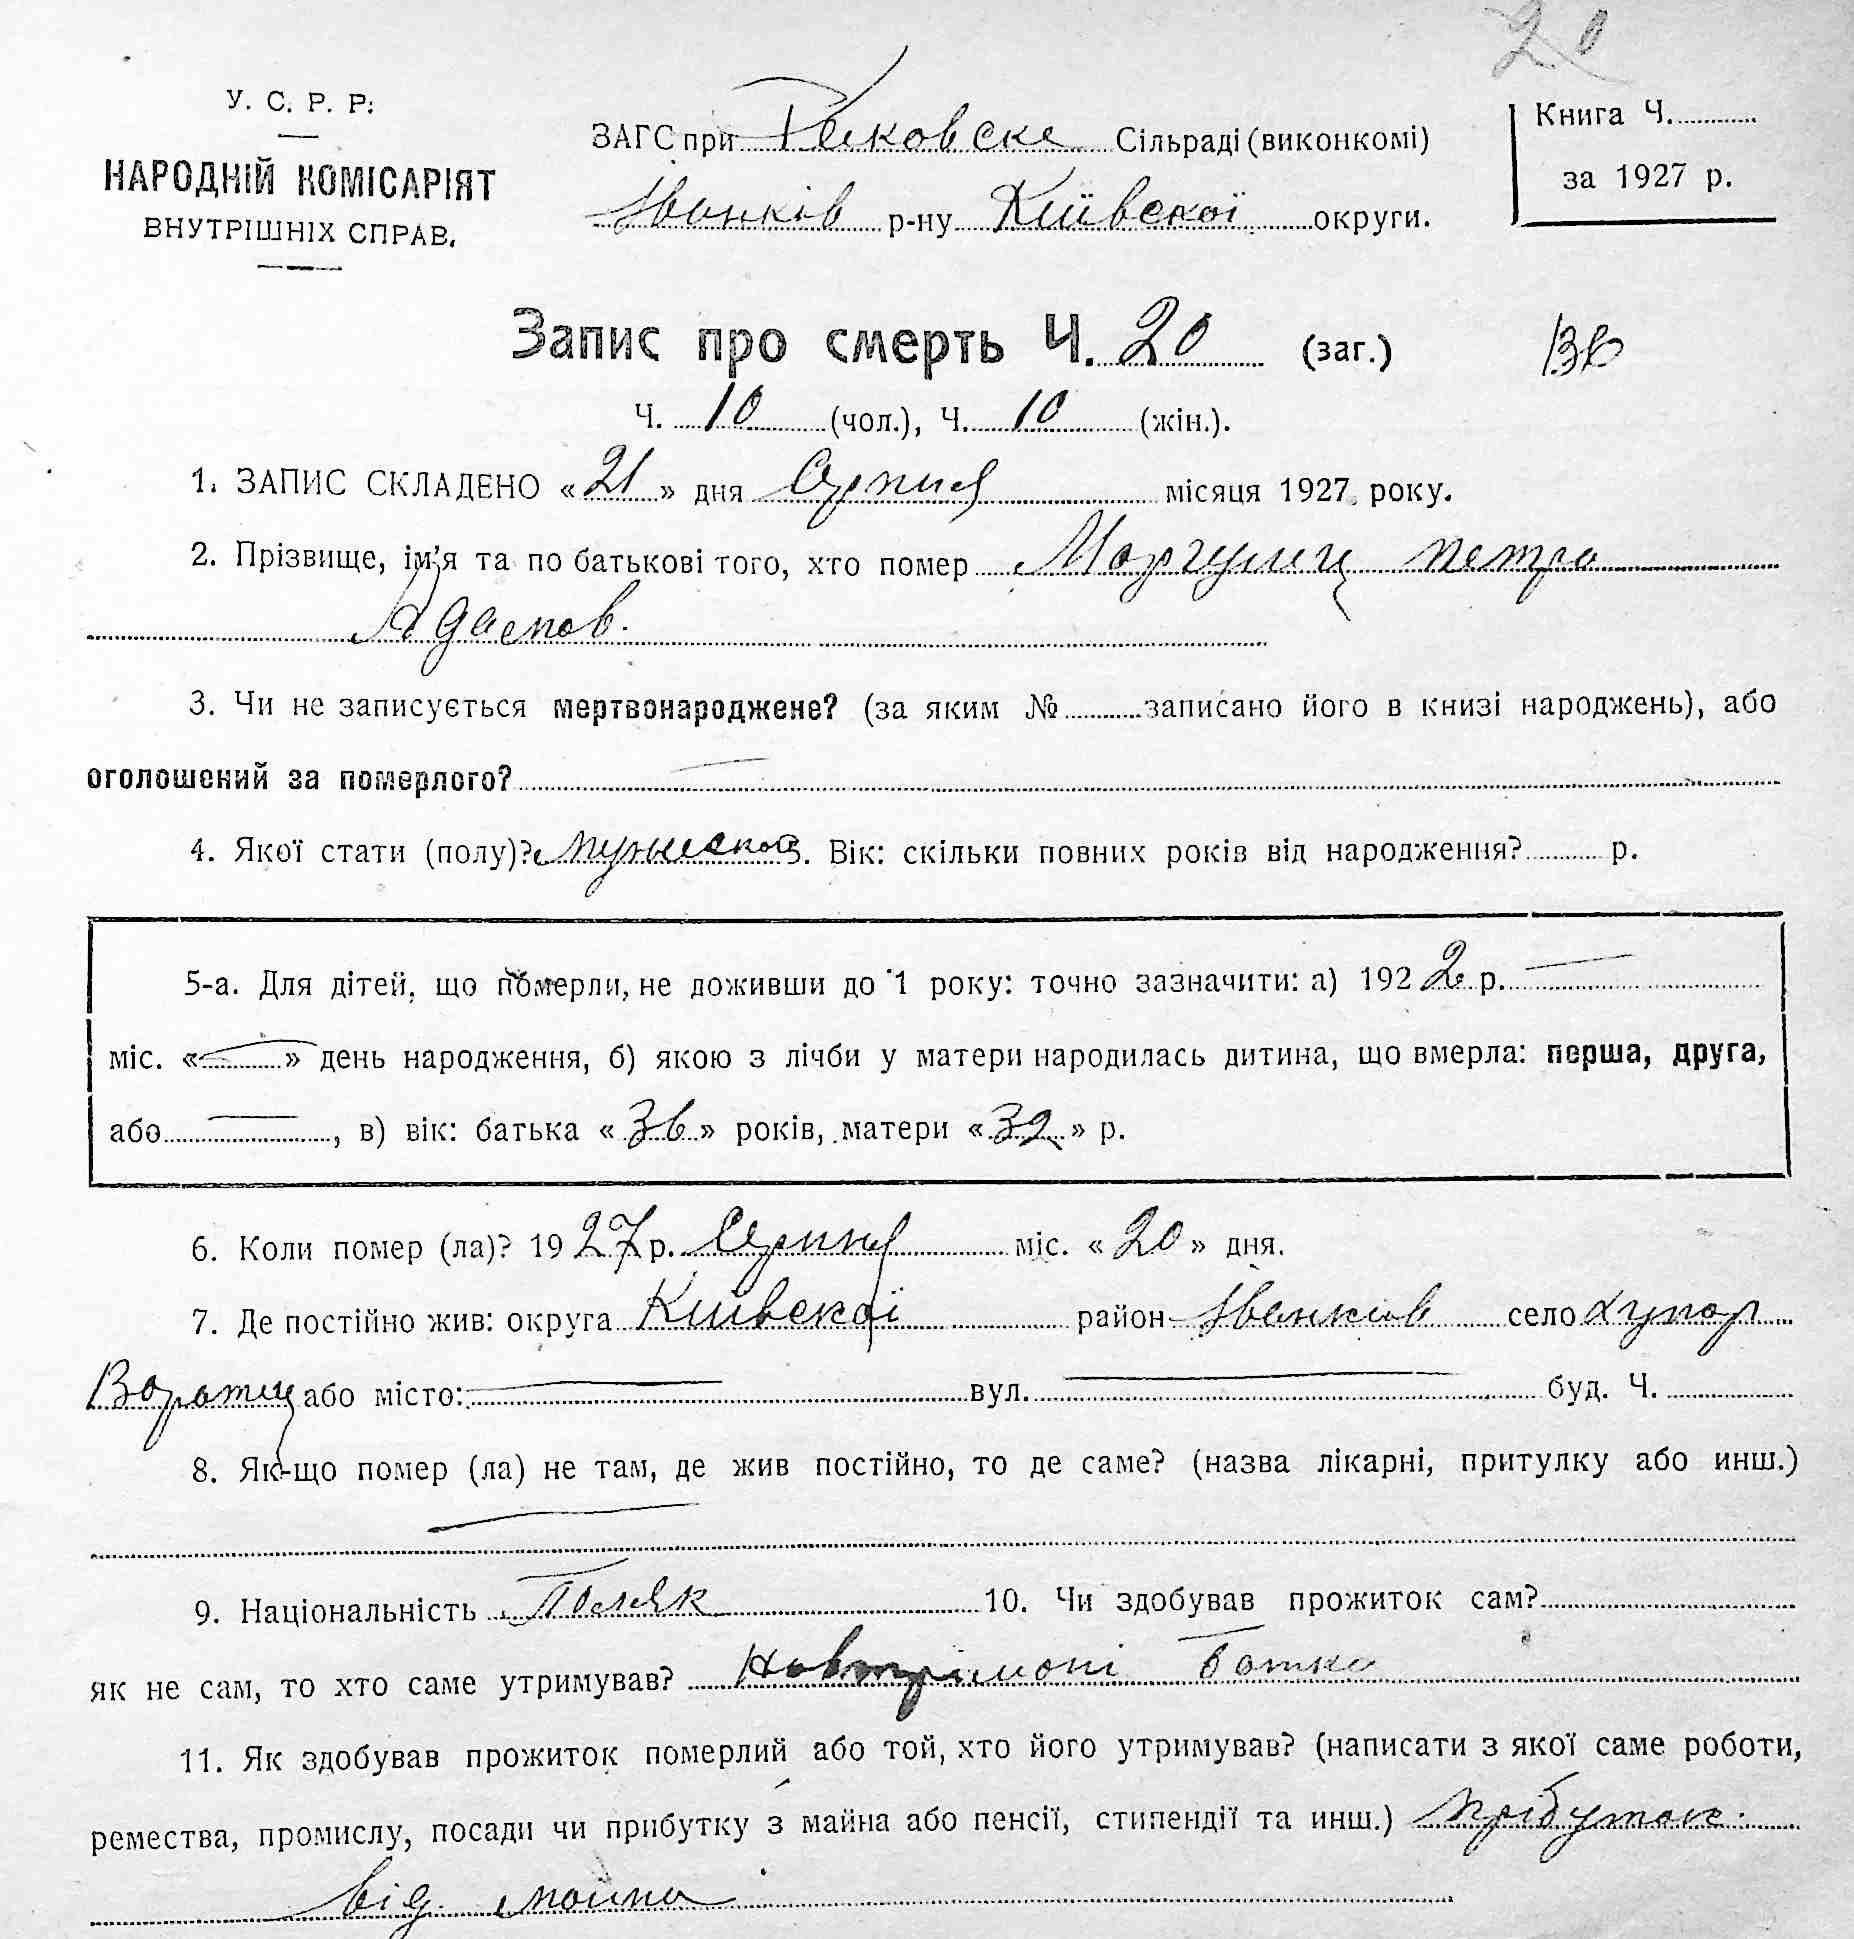 20
У. С. Р. Р.
НАРОДНІЙ КОМІСАРІЯТ
ВНУТРІШНІХ СПРАВ.
ЗАГС при Сільраді (виконкомі)
Іванків р-ну Київскої округи.
Книга Ч.
за 1927 р.
Запис про смерть Ч. 20 (заг.)
Ч. 10 (чол.), Ч. 10 (жін.).
1. ЗАПИС СКЛАДЕНО «21» дня Серпня місяця 1927 року.
2. Прізвище, ім'я та по батькові того, хто помер Моргулец Петро
Адамов.
3. Чи не записується мертвонароджене? (за яким № записано його в книзі народжень), або
оголошений за померлого? —
4. Якої стати (полу)? Вік: скільки повних років від народження? р.
5-а. Для дітей, що померли, не доживши до 1 року: точно зазначити: а) 1922 р. —
міс. «—» день народження, б) якою з лічби у матери народилась дитина, що вмерла: перша, друга,
або —, в) вік: батька «36» років, матери «32» р.
6. Коли помер (ла)? 1927 р. Серпня міс. «20» дня.
7. Де постійно жив: округа Київскої район Іванков село хутор
Воротец або місто: — вул. — буд. Ч.
8. Як-що помер (ла) не там, де жив постійно, то де саме? (назва лікарні, притулку або инш.)
—
9. Національність Поляк 10. Чи здобував прожиток сам?
як не сам, то хто саме утримував? Батка
11. Як здобував прожиток померлий або той, хто його утримував? (написати з якої саме роботи,
ремества, промислу, посади чи прибутку з майна або пенсії, стипендії та инш.) прібуток
від майна